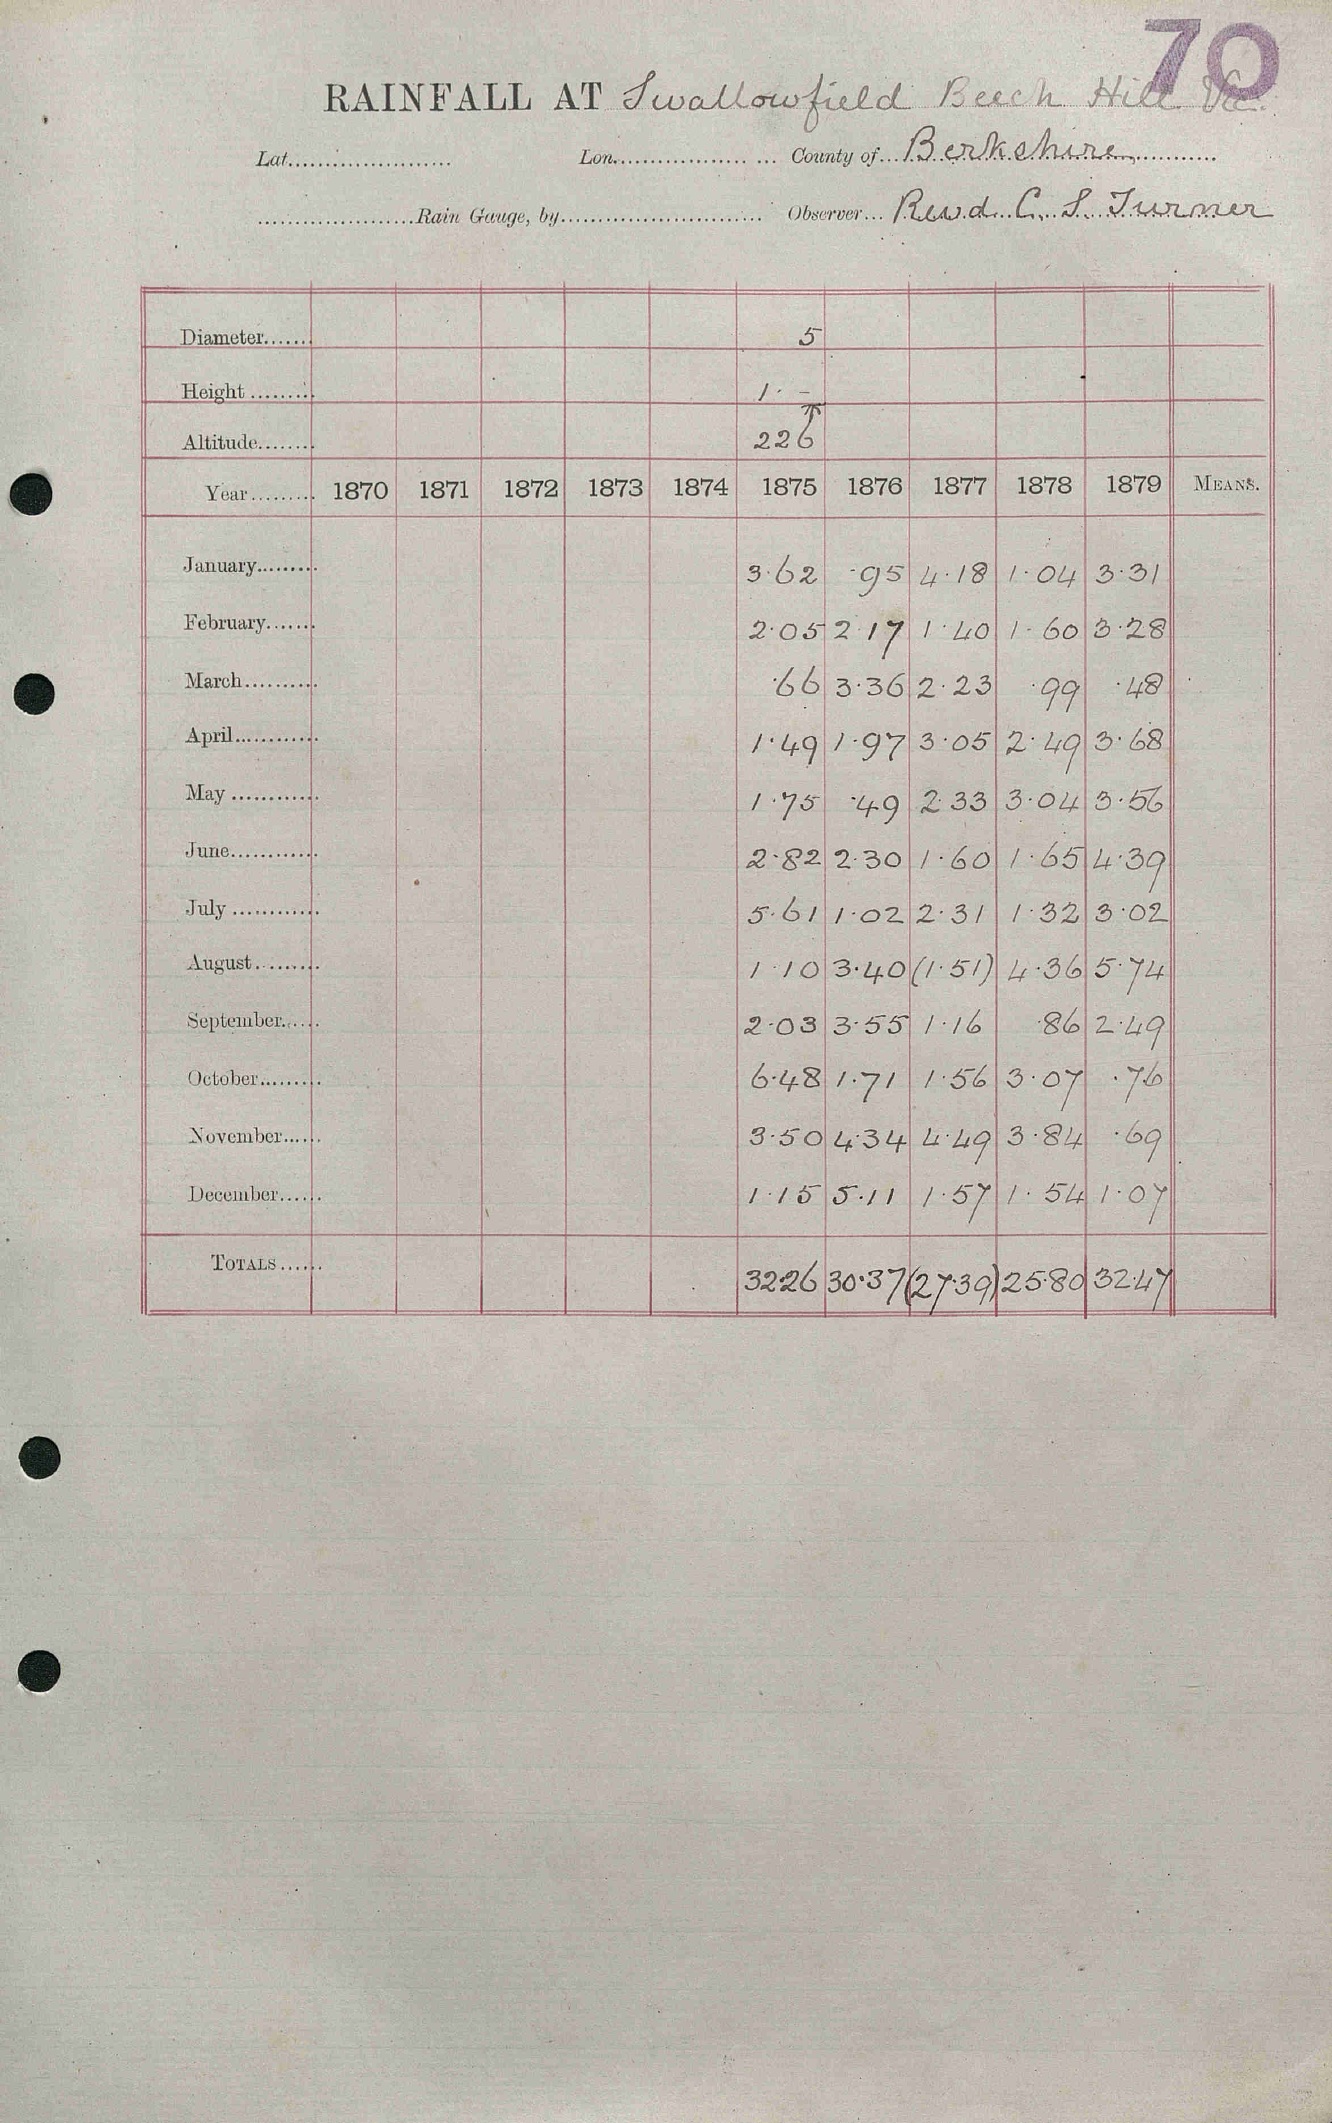 70
RAINFALL AT Swallowfield Beech Hill Vic.
Lat. Lon. County of Berkshire
Rain Gauge, by Observer Revd. C. S. Turner
Diameter 5
Height 1· –
Altitude 226 ↑
Year 1870 1871 1872 1873 1874 1875 1876 1877 1878 1879 MEANS.
January 3·62 ·95 4·18 1·04 3·31
February 2·05 2·17 1·40 1·60 3·28
March ·66 3·36 2·23 ·99 ·48
April 1·49 1·97 3·05 2·49 3·68
May 1·75 ·49 2·33 3·04 3·56
June 2·82 2·30 1·60 1·65 4·39
July 5·61 1·02 2·31 1·32 3·02
August 1·10 3·40 (1·51) 4·36 5·74
September 2·03 3·55 1·16 ·86 2·49
October 6·48 1·71 1·56 3·07 ·76
November 3·50 4·34 4·49 3·84 ·69
December 1·15 5·11 1·57 1·54 1·07
TOTALS 32·26 30·37 (27·39) 25·80 32·47